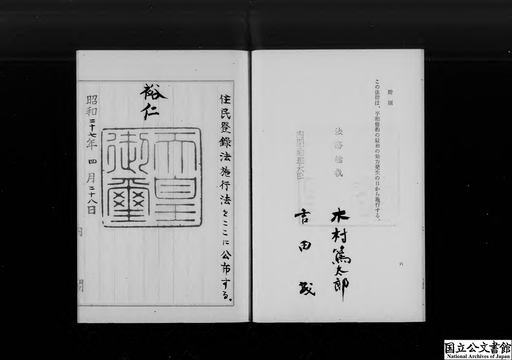 附則
この法律は、平和條約の最初の効力発生の日から施行する。
法務総裁
木村篤太郎
内閣総理大臣
吉田茂
住民登録法施行法をここに公布する。
裕仁
天皇御璽
昭和二十七年四月二十八日
国立公文書館
National Archives of Japan